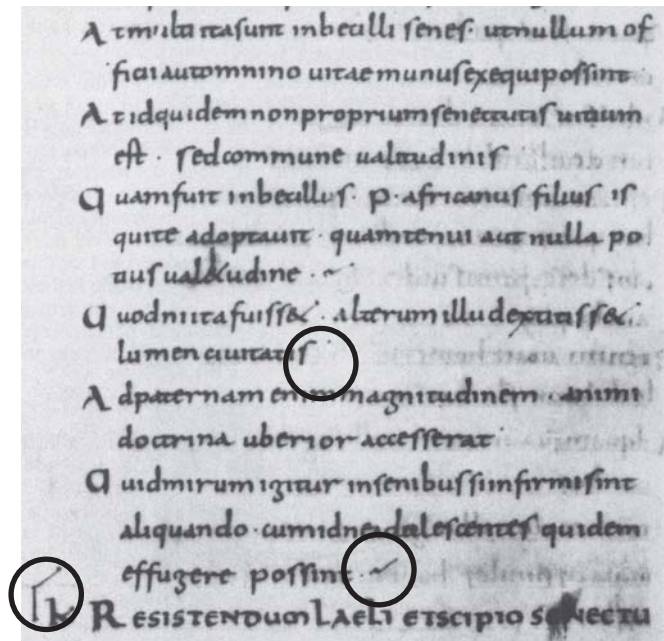 At multi ita sunt inbecilli senes · ut nullum of
ficii aut omnino uitae munus exequi possint ·
At id quidem non proprium senectutis uitium
est · sed commune ualitudinis
Quam fuit inbecillus · P · africanus filius is
qui te adoptauit · quam tenui aut nulla po
tius ualetudine ·
Quod ni ita fuisset · alterum illud extitisset
lumen ciuitatis ·
Ad paternam enim magnitudinem animi
doctrina uberior accesserat ·
Quid mirum igitur in senibus si infirmi sint
aliquando · cum id ne adulescentes quidem
effugere possint
k RESISTENDUM LAELI ET SCIPIO SENECTU